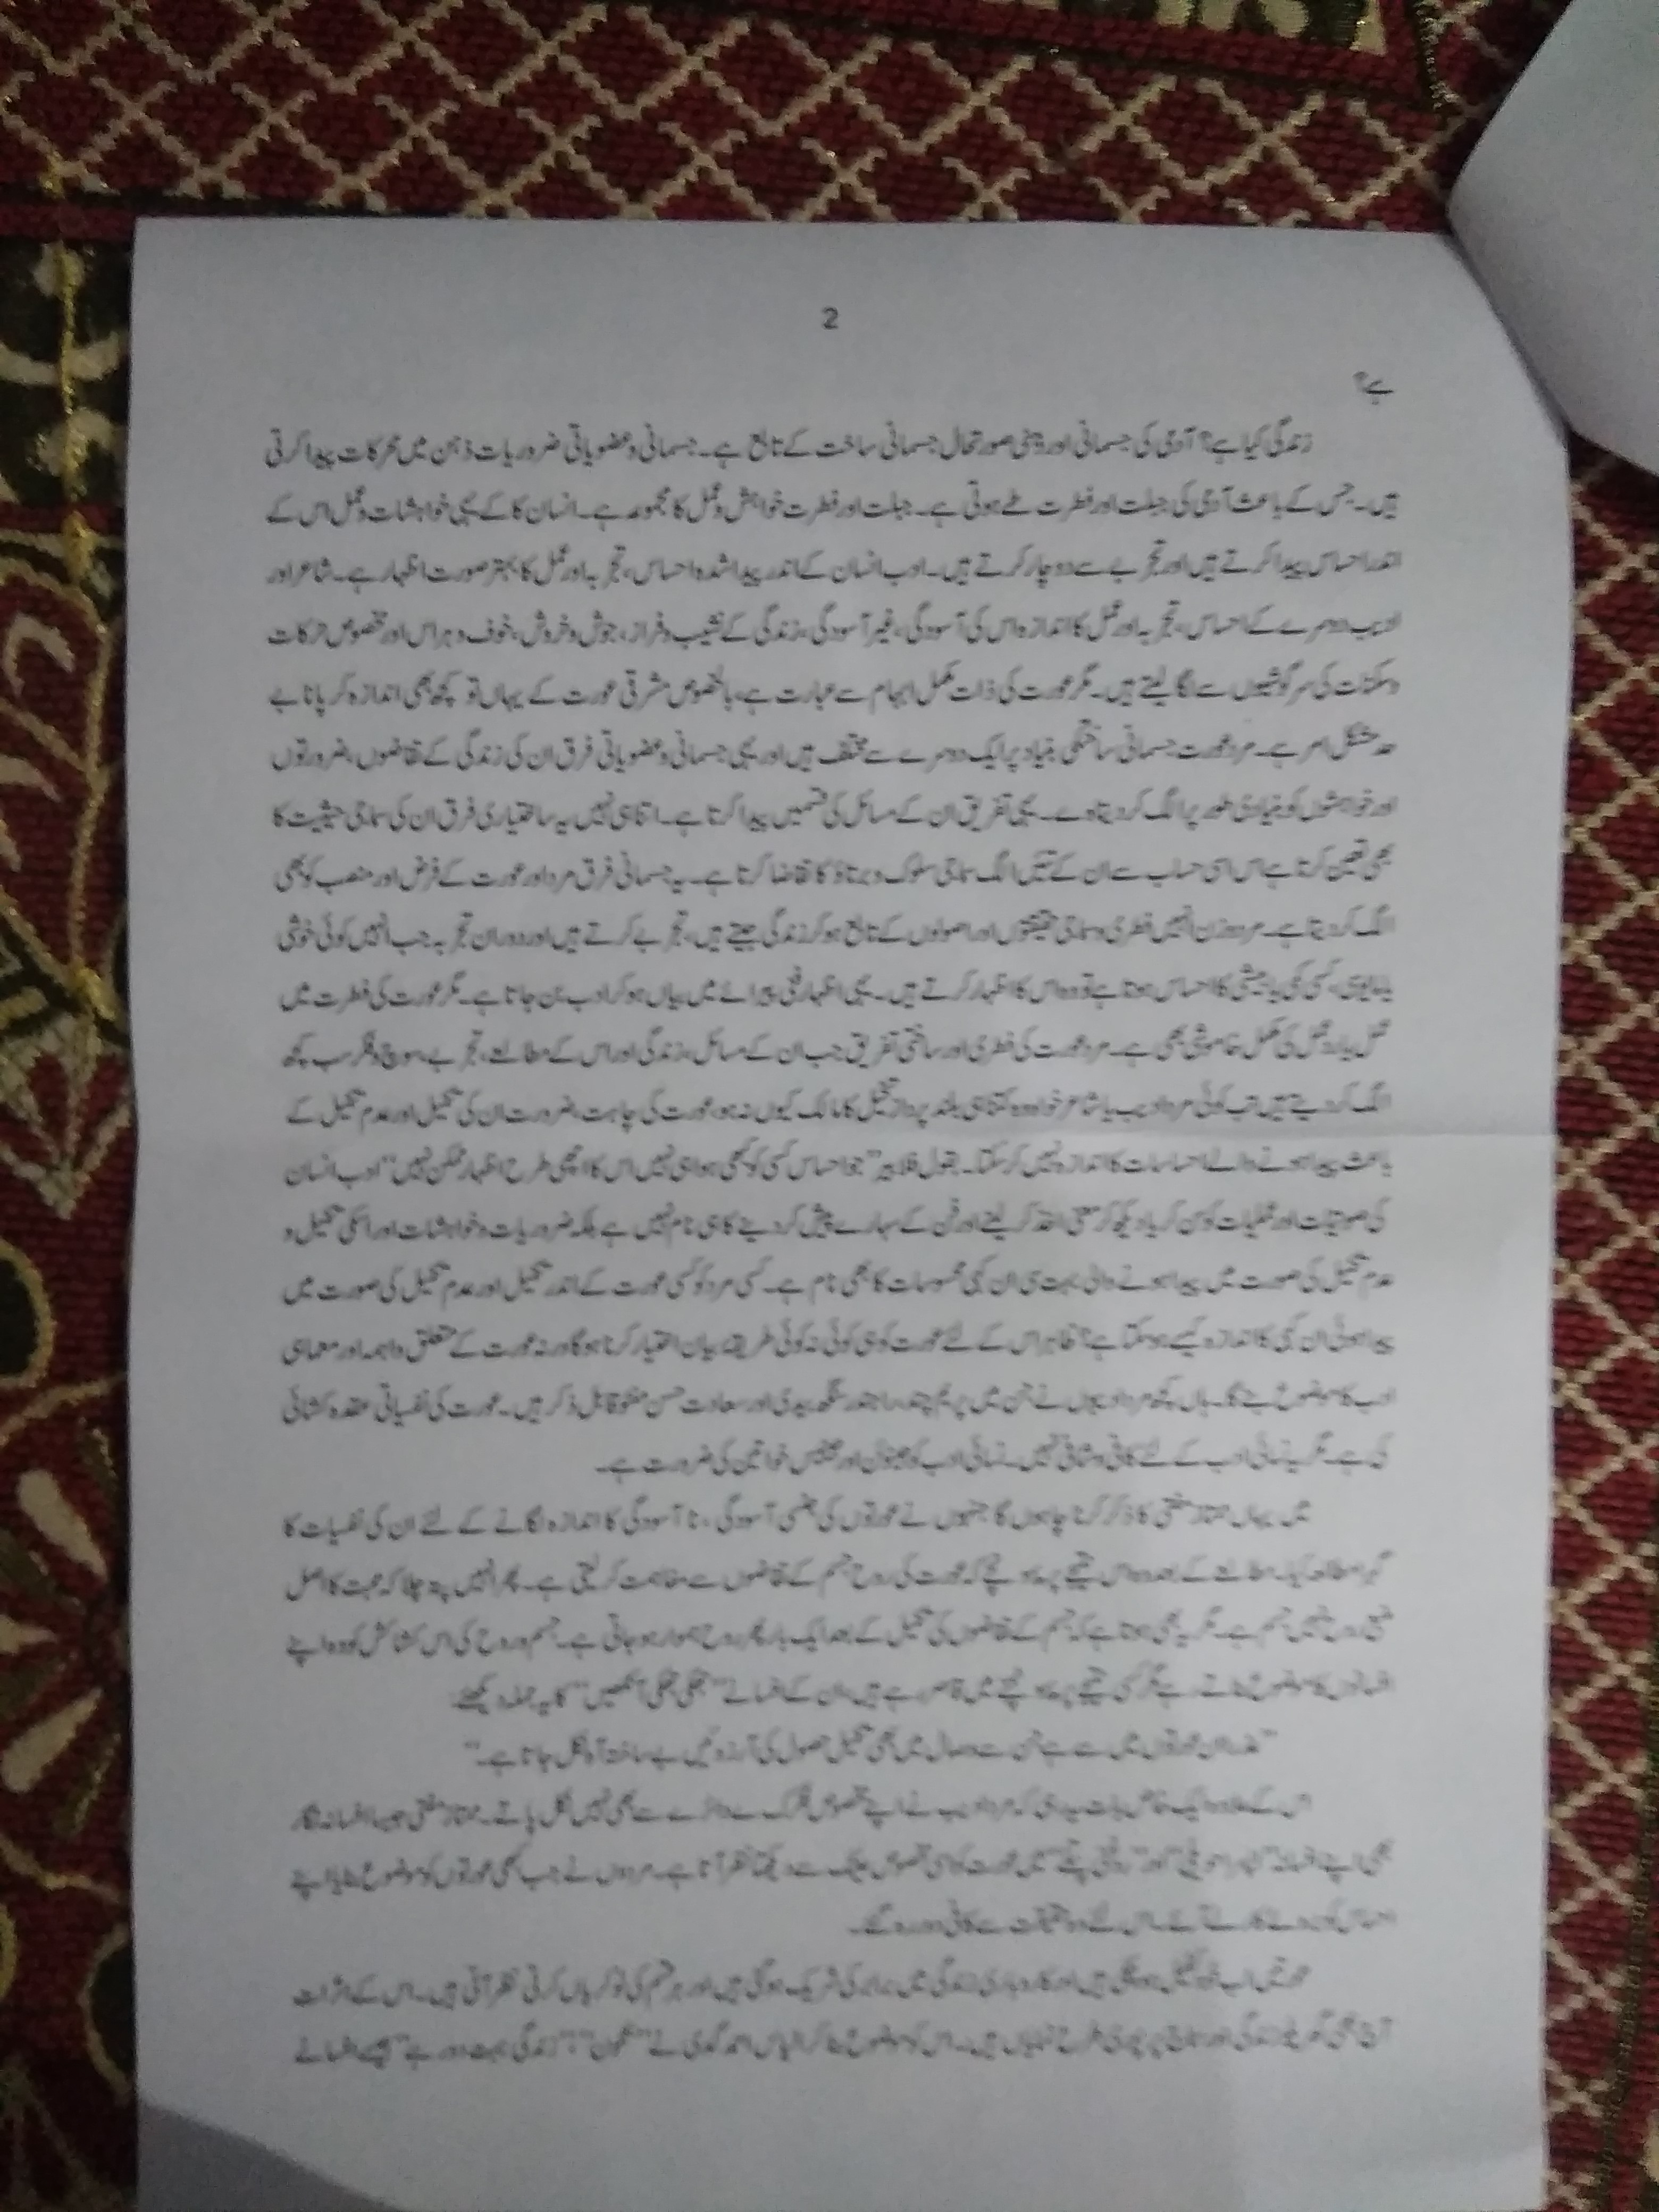 2
ہے؟
زندگی کیا ہے؟ آدمی کی جسمانی اور ذہنی صورتحال جسمانی ساخت کے تابع ہے۔ جسمانی و عضویاتی ضروریات ذہن میں محرکات پیدا کرتی
ہیں۔ جس کے باعث آدمی کی جبلت اور فطرت طے ہوتی ہے۔ جبلت اور فطرت خواہش و عمل کا مجموعہ ہے۔ انسان کا کے یہی خواہشات و عمل اس کے
اندر احساس پیدا کرتے ہیں اور تجربے سے دوچار کرتے ہیں۔ ادب انسان کے اندر پیدا شدہ احساس، تجربہ اور عمل کا بہتر صورت اظہار ہے۔ شاعر اور
ادیب دوسرے کے احساس، تجربہ اور عمل کا اندازہ اس کی آسودگی، غیر آسودگی، زندگی کے نشیب و فراز، جوش و خروش، خوف و ہراس اور مخصوص حرکات
و سکنات کی سرگوشیوں سے لگا لیتے ہیں۔ مگر عورت کی ذات مکمل ابہام سے عبارت ہے، بالخصوص مشرقی عورت کے یہاں تو کچھ بھی اندازہ کر پانا بے
حد مشکل امر ہے۔ مرد عورت جسمانی ساخت کی بنیاد پر ایک دوسرے سے مختلف ہیں اور یہی جسمانی و عضویاتی فرق ان کی زندگی کے تقاضوں، ضرورتوں
اور خواہشوں کو بنیادی طور پر الگ کر دیتا ہے۔ یہی تفریق ان کے مسائل کی قسمیں پیدا کرتا ہے۔ اتنا ہی نہیں یہ ساختیاری فرق ان کی سماجی حیثیت کا
بھی تعین کرتا ہے اس ہی حساب سے ان کے تئیں الگ سماجی سلوک و برتاؤ کا تقاضا کرتا ہے۔ یہ جسمانی فرق مرد اور عورت کے فرض اور منصب کو بھی
الگ کر دیتا ہے۔ مرد و زن انہیں فطری و سماجی حقیقتوں اور اصولوں کے تابع ہو کر زندگی جیتے ہیں، تجربے کرتے ہیں اور دوران تجربہ جب انہیں کوئی خوشی
یا مایوسی، کسی کمی یا بیشی کا احساس ہوتا ہے تو وہ اس کا اظہار کرتے ہیں۔ یہی اظہار فنی پیرائے میں بیاں ہو کر ادب بن جاتا ہے۔ مگر عورت کی فطرت میں
عمل یا رد عمل کی مکمل خاموشی بھی ہے۔ مرد عورت کی فطری اور ساختی تفریق جب ان کے مسائل، زندگی اور اس کے مطالبے، تجربے، سوچ و فکر سب کچھ
الگ کر دیتے ہیں تب کوئی مرد ادیب یا شاعر خواہ وہ کتنا ہی بلند پرداز تخیل کا مالک کیوں نہ ہو، عورت کی چاہت، ضرورت ان کی تکمیل اور عدم تکمیل کے
باعث پیدا ہونے والے احساسات کا اندازہ نہیں کر سکتا۔ بقول "جو احساس کسی کو کبھی ہوا ہی نہیں اس کا اچھی طرح اظہار ممکن نہیں" ادب انسان
کی صوتیات اور عملیات کو سن کر یا دیکھ کر معنی اخذ کر لینے اور فن کے سہارے پیش کر دینے کا ہی نام نہیں ہے بلکہ ضروریات و خواہشات اور اسکی تکمیل و
عدم تکمیل کی صورت میں پیدا ہونے والی بہت سی ان کہی محسوسات کا بھی نام ہے۔ کسی مرد کو کسی عورت کے اندر تکمیل اور عدم تکمیل کی صورت میں
پیدا ہوئی ان کہی کا اندازہ کیسے ہو سکتا ہے؟ ظاہر اس کے لئے عورت کو ہی کوئی نہ کوئی طریقہ بیان اختیار کرنا ہوگا ورنہ عورت کے متعلق واہمہ اور معمہ ہی
ادب کا موضوع بنے گا۔ ہاں کچھ مرد ادیبوں نے جن میں پریم چند، راجندر سنگھ بیدی اور سعادت حسن منٹو قابل ذکر ہیں۔ عورت کی نفسیاتی عقدہ کشائی
کی ہے۔ مگر یہ نسائی ادب کے لئے کافی و شافی نہیں۔ نسائی ادب کو خواتین کی ضرورت ہے۔
میں یہاں ممتاز مفتی کا ذکر کرنا چاہوں گا جنہوں نے عورتوں کی جنسی آسودگی، نا آسودگی کا اندازہ لگانے کے لئے ان کی نفسیات کا
گہرا مطالعہ کیا۔ مطالعے کے بعد وہ اس نتیجے پر پہنچے کہ عورت کی روح جسم کے تقاضوں سے مفاہمت کر لیتی ہے۔ پھر انہیں پتہ چلا کہ محبت کا اصل
منبع روح نہیں جسم ہے۔ مگر یہ بھی ہوتا ہے کہ جسم کے تقاضوں کی تکمیل کے بعد ایک بار پھر روح ہو جاتی ہے۔ جسم و روح کی اس کشاکش کو وہ اپنے
افسانوں کا موضوع بناتے رہے مگر کسی نتیجے پر پہنچنے میں قاصر رہے ہیں ان کے افسانے "جھکی جھکی آنکھیں" کا یہ جملہ دیکھئے
عورتوں میں سے ہے جن سے وصال میں بھی تکمیل حصول کی آرزو میں بے ساختہ آہ نکل جاتا ہے۔"
اس کے علاوہ ایک خاص بات یہ رہی کہ مرد ادیب نے اپنے مخصوص دائرے سے بھی نہیں نکل پاتے۔ ممتاز مفتی جیسا افسانہ نگار
بھی اپنے افسانہ میں عورت کو مخصوص عینک سے دیکھتا نظر آتا ہے۔ مردوں نے جب بھی عورتوں کو موضوع بنایا اپنے
عورتیں اب اور کاروباری زندگی میں برابر کی شریک ہو گئی ہیں اور ہر قسم کی نوکریاں کرتی نظر آتی ہیں۔ اس کے اثرات